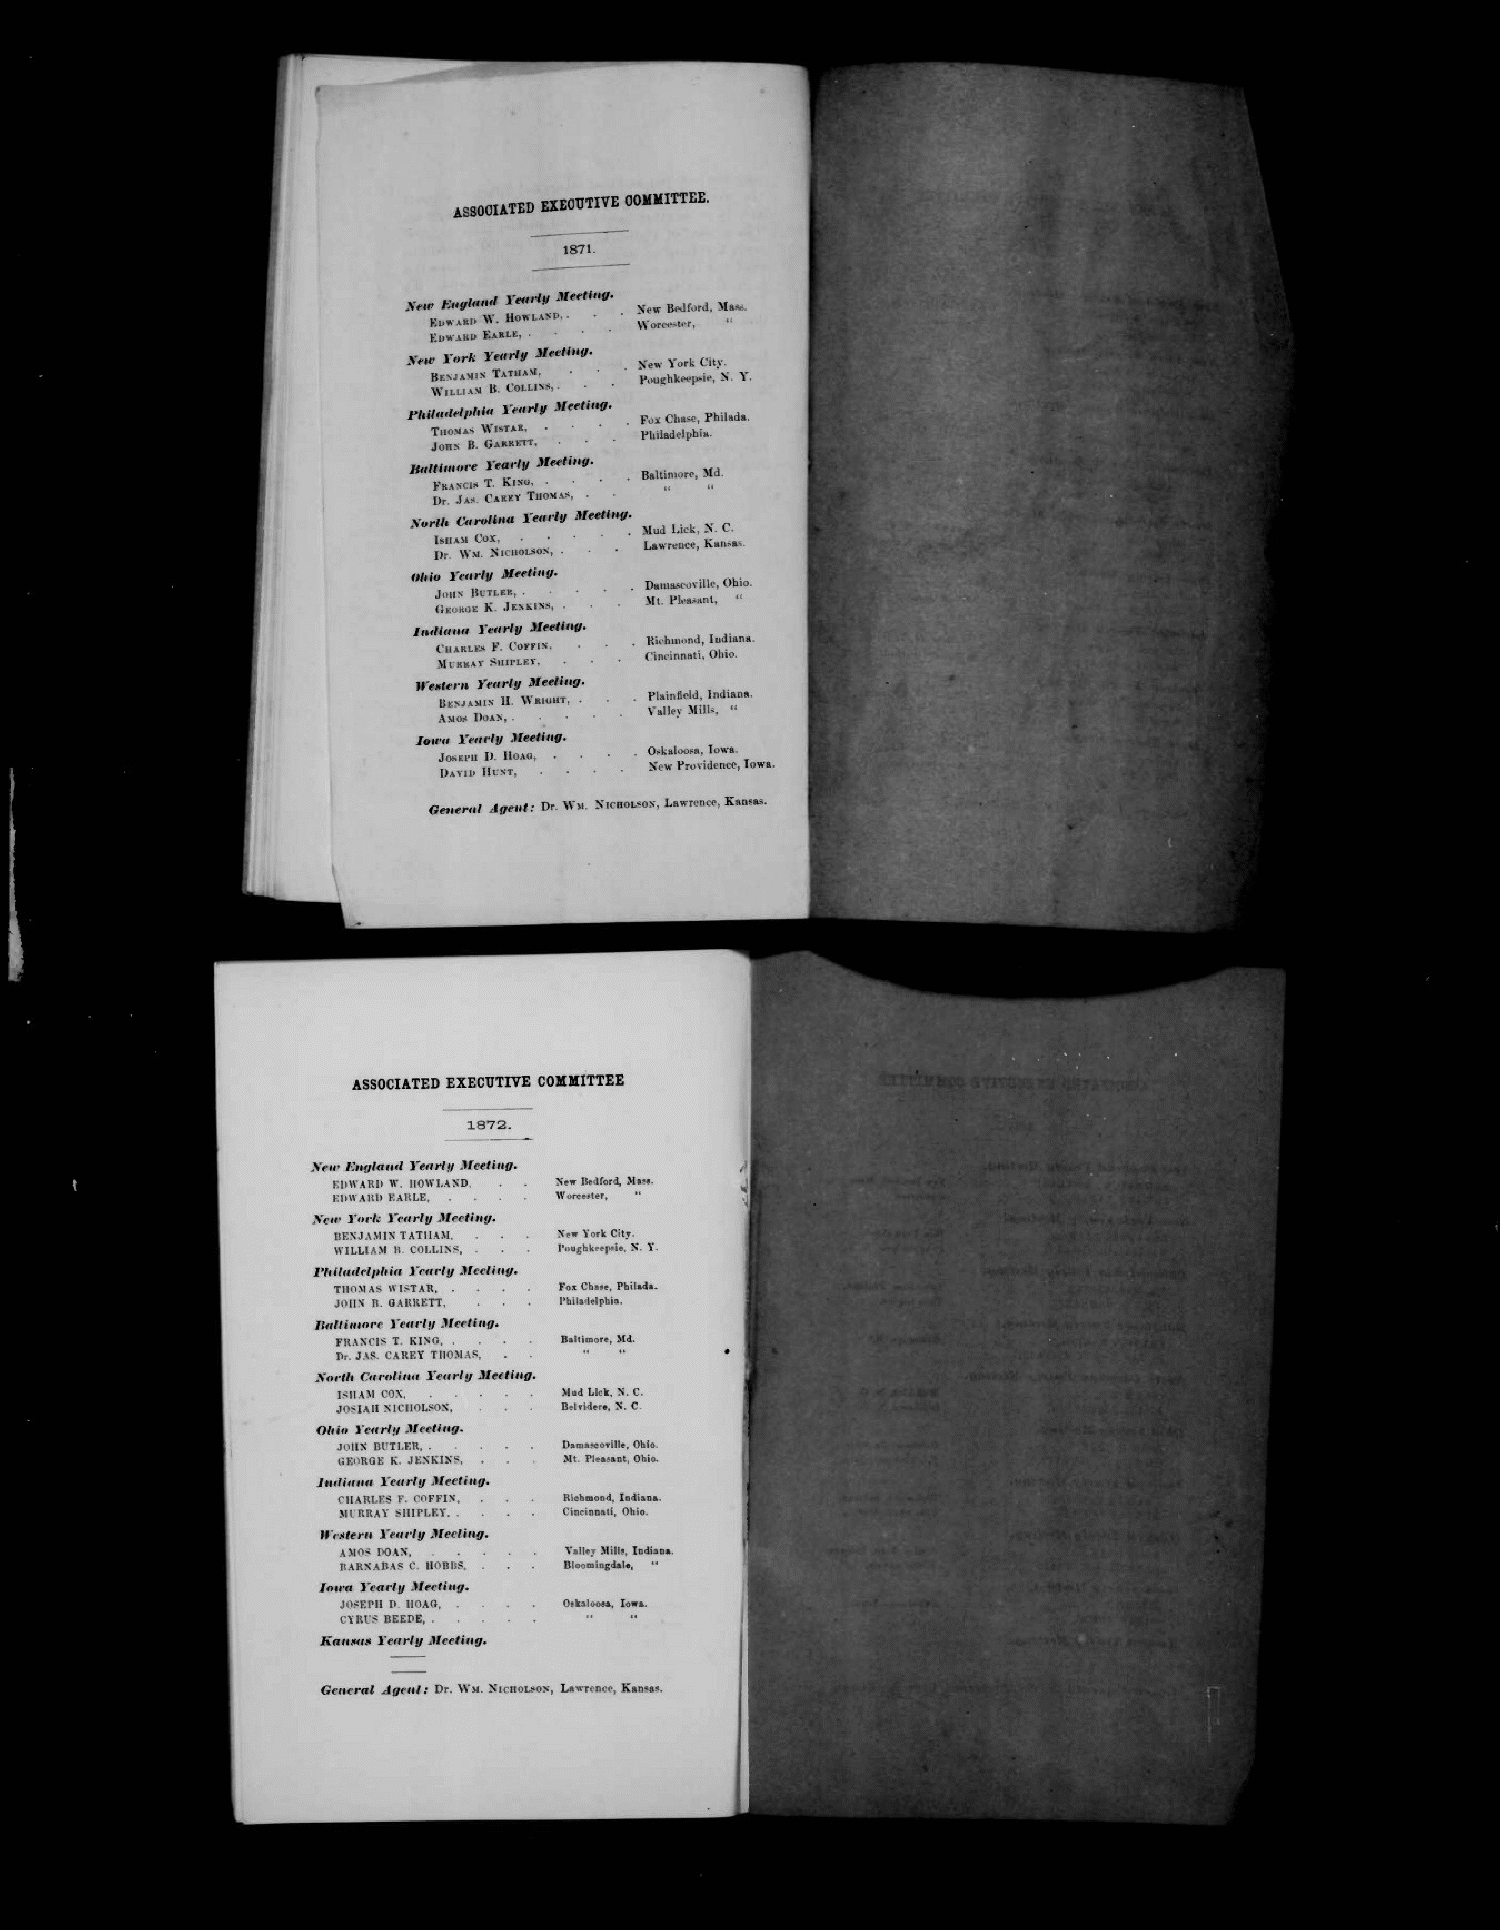 ASSOCIATED EXECUTIVE COMMITTEE.
1871.
New England Yearly Meeting.
EDWARD W. HOWLAND, . . . New Bedford, Mass.
EDWARD EARLE, . . . . Worcester, "
New York Yearly Meeting.
BENJAMIN TATHAM, . . . New York City.
WILLIAM B. COLLINS, . . . Poughkeepsie, N. Y.
Philadelphia Yearly Meeting.
THOMAS WISTAR, . . . . Fox Chase, Philada.
JOHN B. GARRETT, . . . Philadelphia.
Baltimore Yearly Meeting.
FRANCIS T. KING, . . . . Baltimore, Md.
Dr. JAS. CAREY THOMAS, . . " "
North Carolina Yearly Meeting.
ISHAM COX, . . . . . Mud Lick, N. C.
Dr. WM. NICHOLSON, . . . Lawrence, Kansas.
Ohio Yearly Meeting.
JOHN BUTLER, . . . . . Damascoville, Ohio.
GEORGE K. JENKINS, . . . Mt. Pleasant, "
Indiana Yearly Meeting.
CHARLES F. COFFIN, . . . Richmond, Indiana.
MURRAY SHIPLEY, . . . Cincinnati, Ohio.
Western Yearly Meeting.
BENJAMIN H. WRIGHT, . . . Plainfield, Indiana.
AMOS DOAN, . . . . . Valley Mills, "
Iowa Yearly Meeting.
JOSEPH D. HOAG, . . . . Oskaloosa, Iowa.
DAVID HUNT, . . . . New Providence, Iowa.
General Agent: Dr. WM. NICHOLSON, Lawrence, Kansas.
ASSOCIATED EXECUTIVE COMMITTEE
1872.
New England Yearly Meeting.
EDWARD W. HOWLAND, . . New Bedford, Mass.
EDWARD EARLE, . . . . Worcester, "
New York Yearly Meeting.
BENJAMIN TATHAM, . . . New York City.
WILLIAM B. COLLINS, . . . Poughkeepsie, N. Y.
Philadelphia Yearly Meeting.
THOMAS WISTAR, . . . . Fox Chase, Philada.
JOHN B. GARRETT, . . . Philadelphia.
Baltimore Yearly Meeting.
FRANCIS T. KING, . . . . Baltimore, Md.
Dr. JAS. CAREY THOMAS, . . " "
North Carolina Yearly Meeting.
ISHAM COX, . . . . . Mud Lick, N. C.
JOSIAH NICHOLSON, . . . Belvidere, N. C.
Ohio Yearly Meeting.
JOHN BUTLER, . . . . . Damascoville, Ohio.
GEORGE K. JENKINS, . . . Mt. Pleasant, Ohio.
Indiana Yearly Meeting.
CHARLES F. COFFIN, . . . Richmond, Indiana.
MURRAY SHIPLEY, . . . . Cincinnati, Ohio.
Western Yearly Meeting.
AMOS DOAN, . . . . . Valley Mills, Indiana.
BARNABAS C. HOBBS, . . . Bloomingdale, "
Iowa Yearly Meeting.
JOSEPH D. HOAG, . . . . Oskaloosa, Iowa.
CYRUS BEEDE, . . . . . " "
Kansas Yearly Meeting.
General Agent: Dr. WM. NICHOLSON, Lawrence, Kansas.